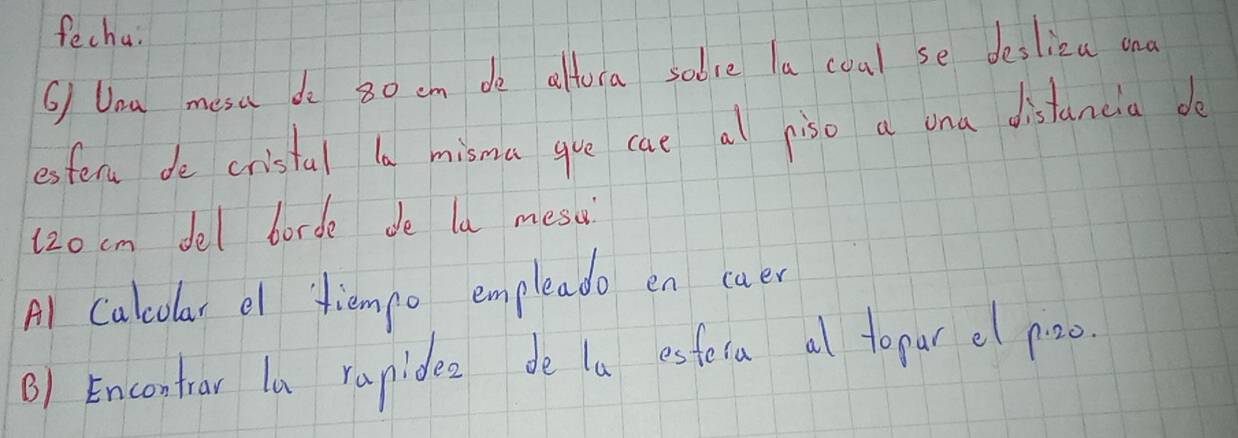 fecha.
6) Una mesa de 80 cm de altura sobre la cual se desliza una
esfera de cristal la misma que cae al piso a una distancia de
120 cm del borde de la mesa.
A) Calcular el tiempo empleado en caer
B) Encontrar la rapidez de la esfera al topar el pizo.